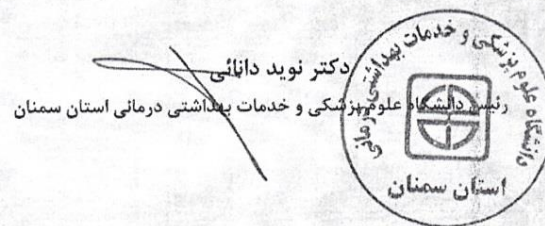 دکتر نوید دانائی
رئیس دانشگاه علوم پزشکی و خدمات بهداشتی درمانی استان سمنان
دانشگاه علوم پزشکی و خدمات بهداشتی درمانی
استان سمنان